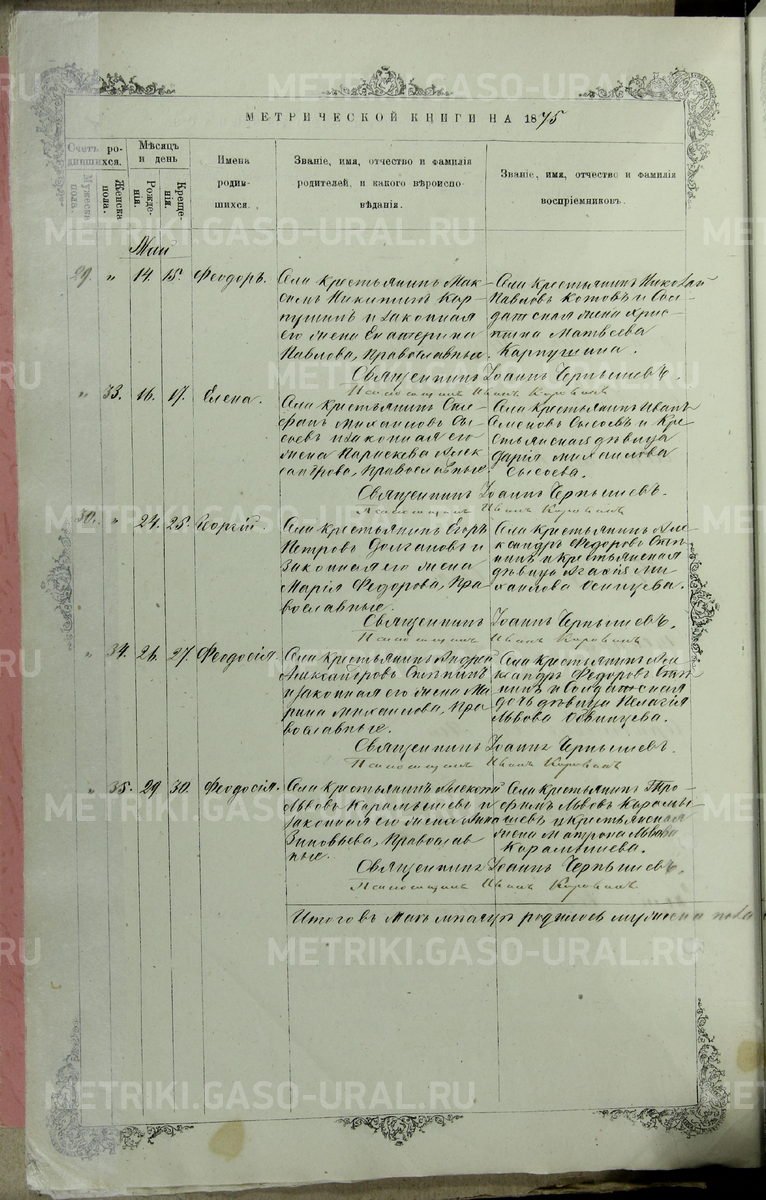 МЕТРИЧЕСКОЙ КНИГИ НА 1875
Счетъ родившихся.
Мужеска пола.
Женска пола.
Мѣсяцъ и день
Рожденія.
Крещенія.
Имена родившихся.
Званіе, имя, отчество и фамилія родителей, и какого вѣроисповѣданія.
Званіе, имя, отчество и фамилія воспріемниковъ.
Май
29. " 14. 15. Феодоръ.
Села крестьянинъ Мак-
симъ Никитинъ Кар-
пушинъ и законная
его жена Екатерина
Павлова, Православные.
Села крестьянинъ Николай
Павловъ Котовъ и Сол-
датская жена Хрис-
тина Матвеева
Карпушина.
Священникъ Іоаннъ Чернышевъ.
Псаломщикъ Иванъ Коровинъ
" 33. 16. 17. Елена.
Села крестьянинъ Сте-
фанъ Михаиловъ Сы-
соевъ и законная его
жена Параскева Алек-
сандрова, Православные
Села крестьянинъ Иванъ
Семеновъ Сысоевъ и Кре-
стьянская дѣвица
Дарія Михаилова
Сысоева.
Священникъ Іоаннъ Чернышевъ.
Псаломщикъ Иванъ Коровинъ
30. " 24. 25. Георгій.
Села крестьянинъ Егоръ
Петровъ Долгановъ и
законная его жена
Марія Федорова, Пра-
вославные.
Села крестьянинъ Але-
ксандръ Федоровъ
и крестьянская
дѣвица Агафія Ми-
хаилова Осинцева.
Священникъ Іоаннъ Чернышевъ.
Псаломщикъ Иванъ Коровинъ
" 34. 26. 27. Феодосія.
Села крестьянинъ Андрей
Александровъ
и законная его жена Ма-
рина Михаилова, Пра-
вославные.
Села крестьянинъ Але-
ксандръ Федоровъ
и Солдатская
дочь дѣвица Пелагія
Львова Обвинцева.
Священникъ Іоаннъ Чернышевъ.
Псаломщикъ Иванъ Коровинъ
" 35. 29 30. Феодосія.
Села крестьянинъ Алексѣй
Львовъ Карамышевъ и
законная его жена Анна
Зиновьева, Православ-
ные.
Села крестьянинъ Тро-
фимъ Львовъ Карамы-
шевъ и крестьянская
жена Матрона Львова
Карамышева.
Священникъ Іоаннъ Чернышевъ.
Псаломщикъ Иванъ Коровинъ
Итого въ Маѣ мѣсяцѣ родилось мужеска пола
METRIKI.GASO-URAL.RU